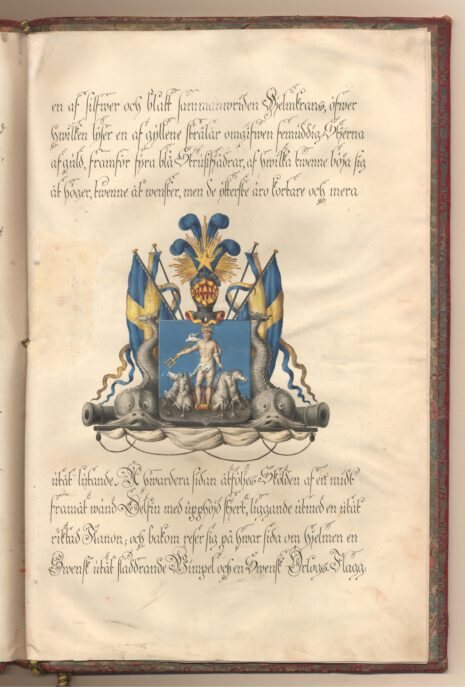 en af silfwer och blått sammanwriden Hjelmkrans, öfwer
hwilken lyser en af gyllene strålar omgifwen femuddig Stjerna
af guld, framför fyra blå Strutsfjädrar, af hwilka twenne böja sig
åt höger, twenne åt wenster, men de ytterste äro kortare och mera
utåt lutande. Å hwardera sidan åtföljes Skölden af ett midt
framåt wänd Delfin med upphöjd stjert, liggande utmed en utåt
riktad Kanon; och bakom reser sig på hwar sida om hjelmen en
Swensk utåt fladdrande Wimpel och en Swensk Örlogs Flagg: